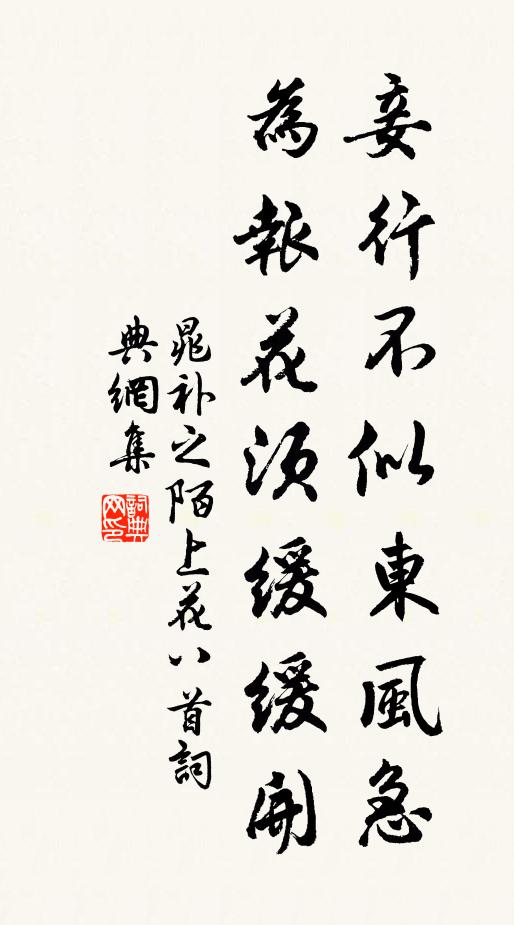 妾行不似東風急
為報花須緩緩開
晁补之陌上花八首詞
典網集
詞典
网印